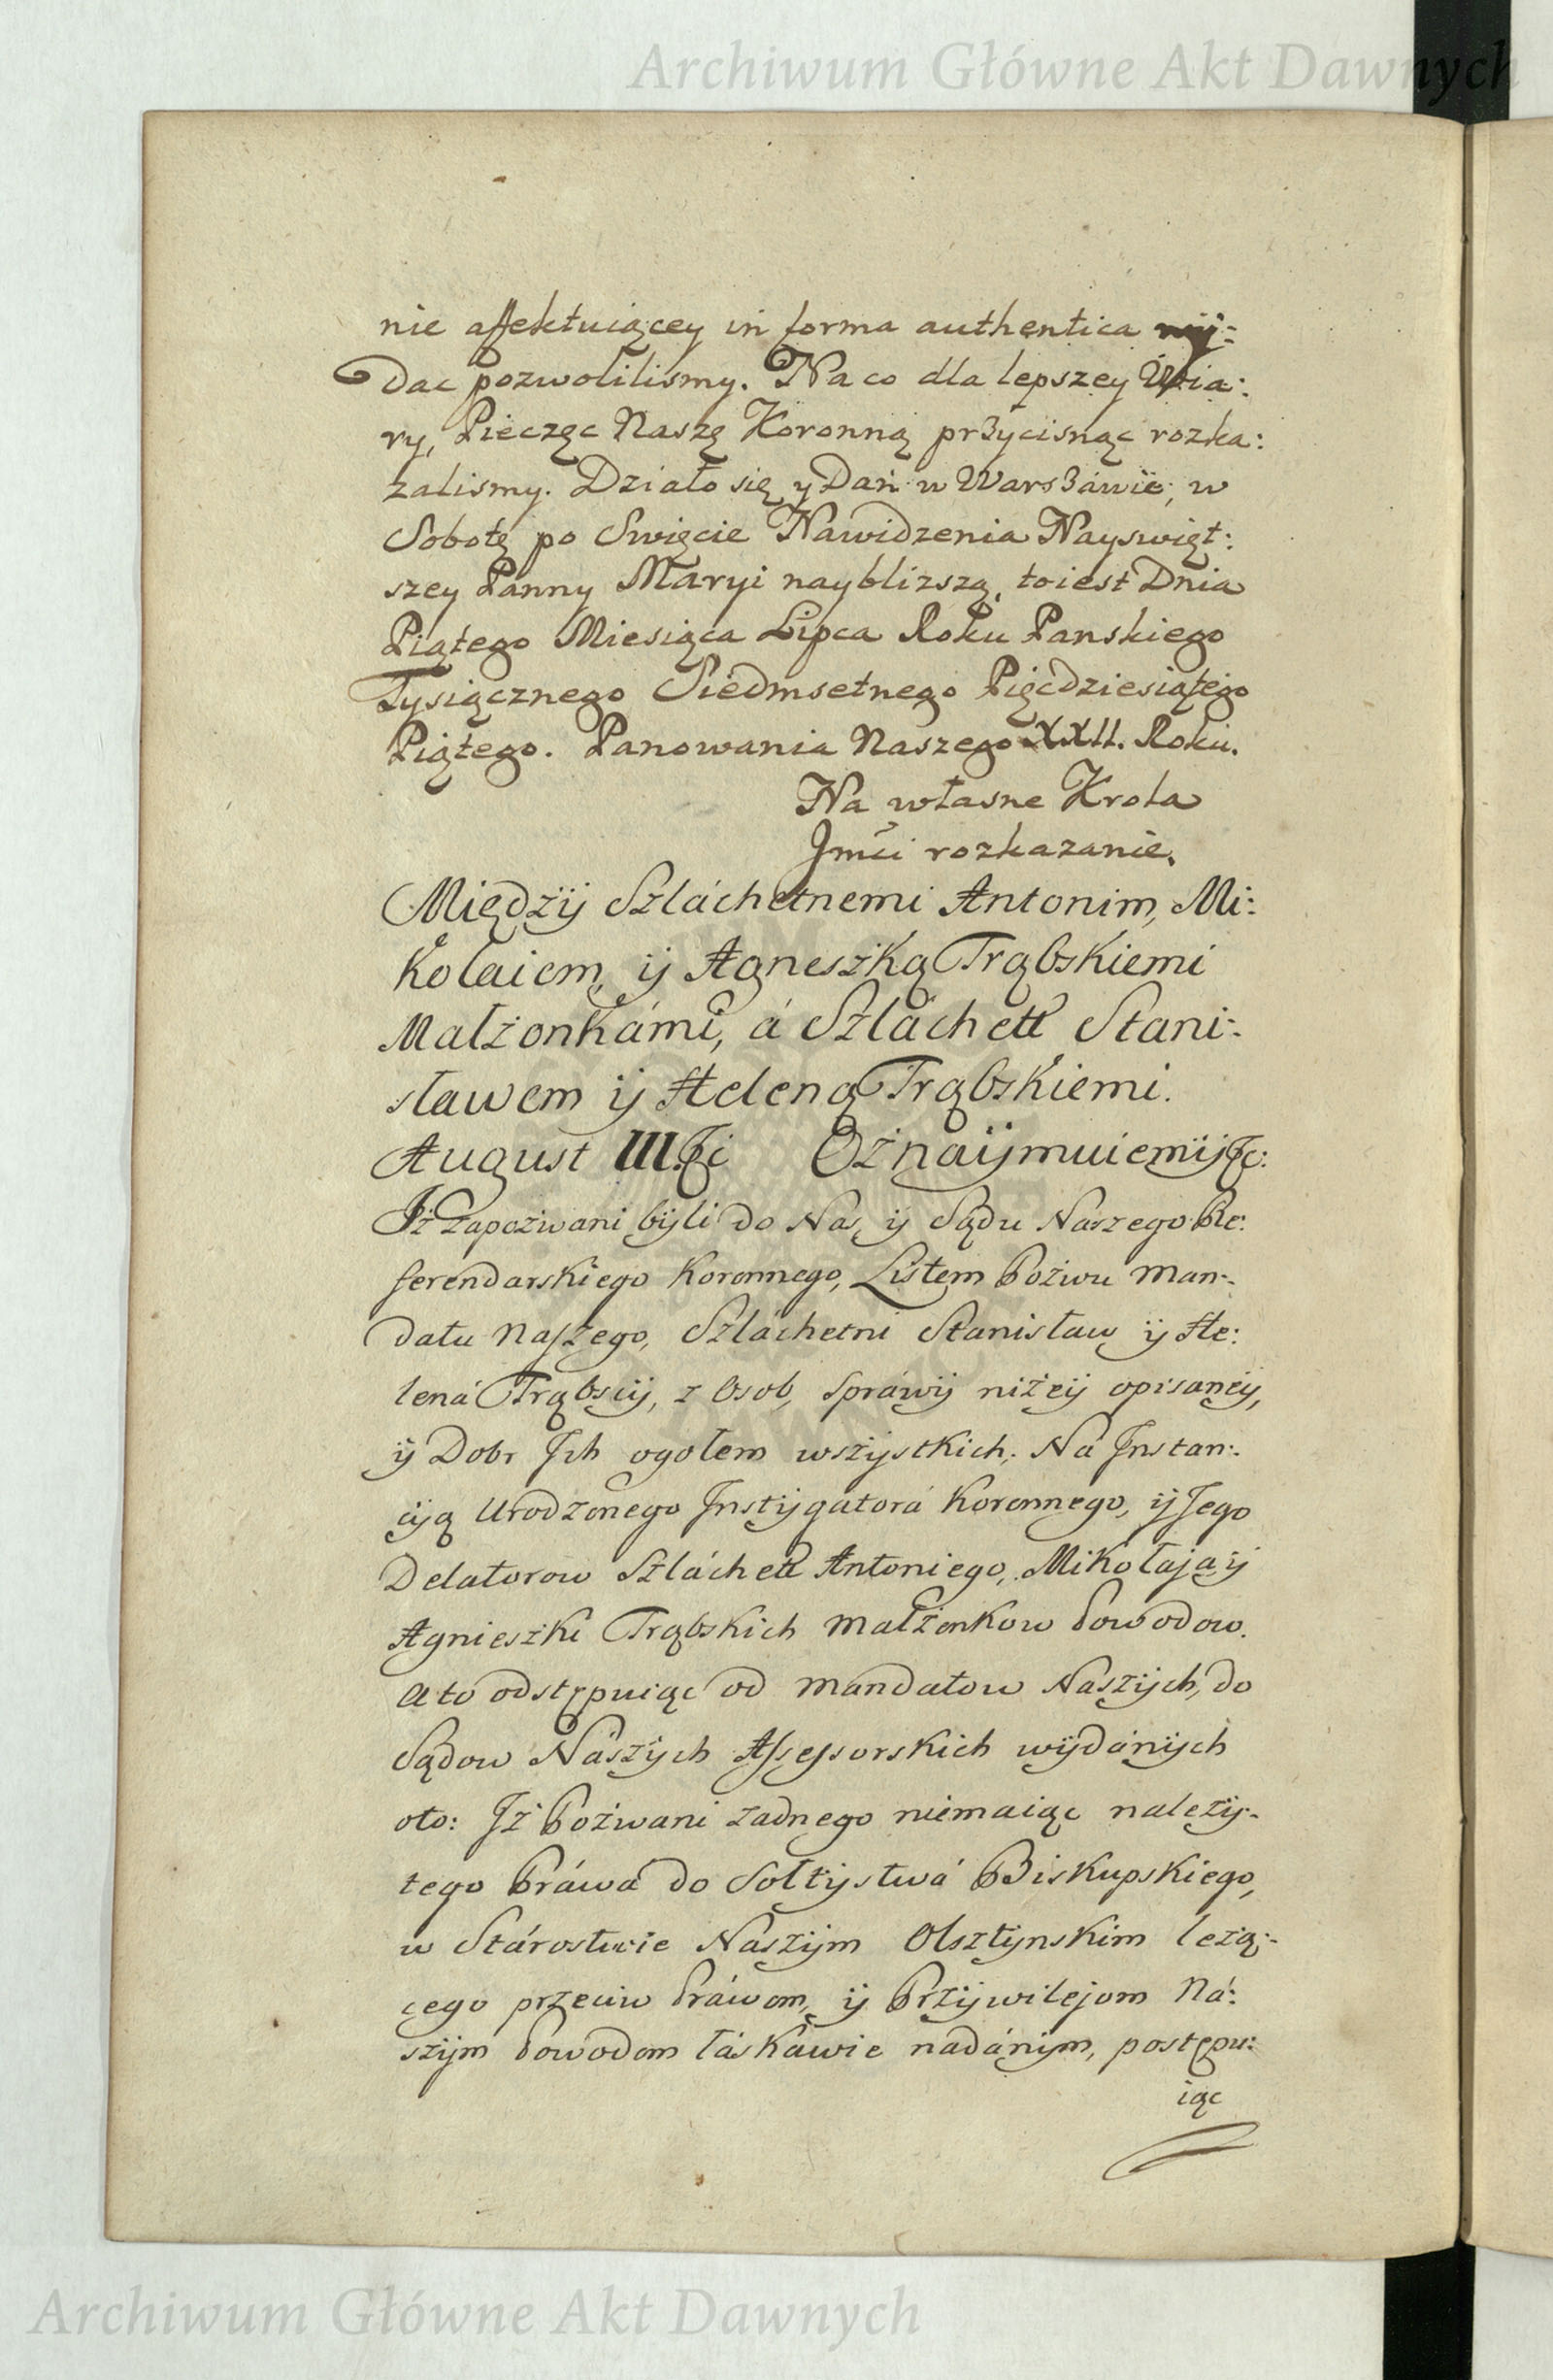 Archiwum Główne Akt Dawnych
nie affektuiącey in forma authentica wÿ:
dac pozwolilismy. Na co dla lepszey Wia:
ry, Pieczęc Naszę Koronną przycisnąc rozka:
zalismy. Działo się y Dan w Warszawie, w
Sobotę po Swięcie Nawidzenia Nayswięt:
szey Panny Maryi naybliższą, toiest Dnia
Piątego Miesiąca Lipca Roku Panskiego
Tysiącznego Siedmsetnego Pięcdziesiątego
Piątego. Panowania Naszego XXII. Roku.
Na własne Krola
Jmći rozkazanie.
Międzÿ Szláchetnemi Antonim, Mi:
kołaiem, ÿ Agneszką Trąbskiemi
Małżonkámi, á Szláchett Stani:
sławem ÿ Heleną Trąbskiemi.
August III. &c Oznaÿmuiemÿ &c:
Iż zapozwani bÿli do Nas, ÿ Sądu Naszego Re:
ferendarskiego Koronnego, Listem Pozwu Man:
datu Naszego, Szláchetni Stanisław ÿ He:
lená Trąbscÿ, z Osob, Spráwÿ niżeÿ opisaneÿ,
ÿ Dobr Ich ogołem wszÿstkich; Na Instan:
cÿą Urodzonego Instÿgatorá Koronnego, ÿ Jego
Delatorow Szláchett Antoniego, Mikołaja ÿ
Agnieszki Trąbskich Małżonkow Powodow.
A to odstępuiąc od Mandatow Naszÿch, do
Sądow Nászÿch Assessorskich wÿdánÿch
oto: Iż Pozwani zadnego niemaiąc należÿ:
tego Práwá do Sołtÿstwá Biskupskiego,
w Stárostwie Naszÿm Olsztÿnskim leżą:
cego przeciw Práwom, ÿ Przÿwilejom Ná:
szÿm Powodom łáskáwie nadánÿm, postępu:
iąc
Archiwum Główne Akt Dawnych